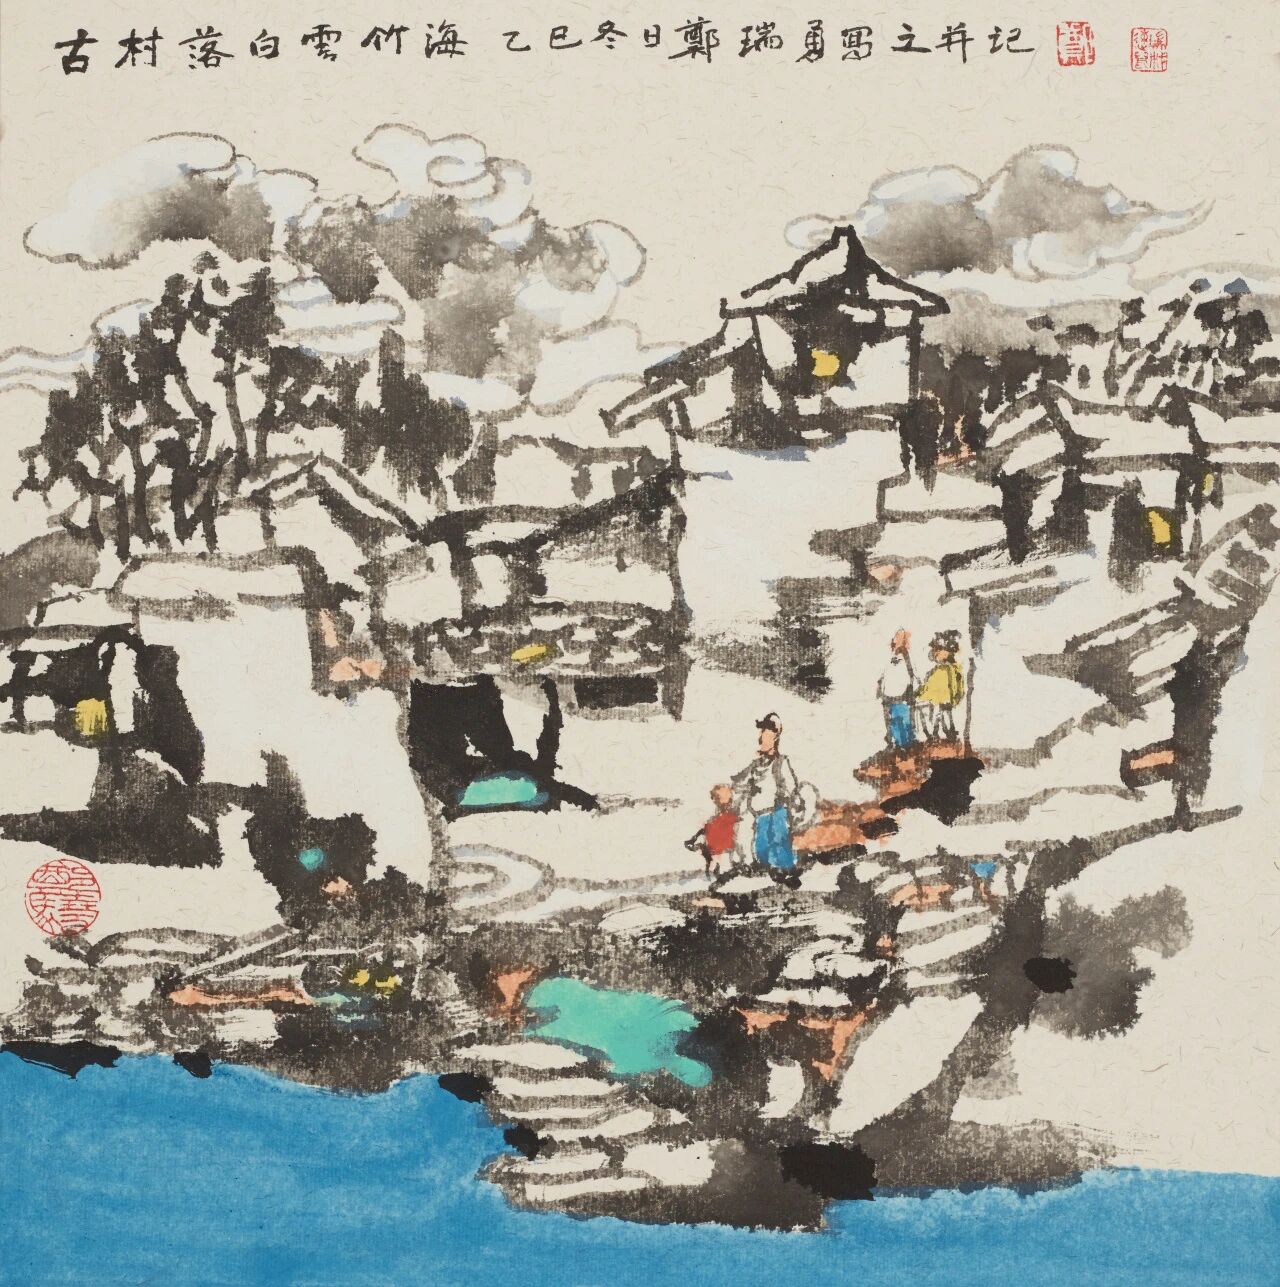 古村落白雲竹海 乙巳冬日鄭瑞勇寫之并记